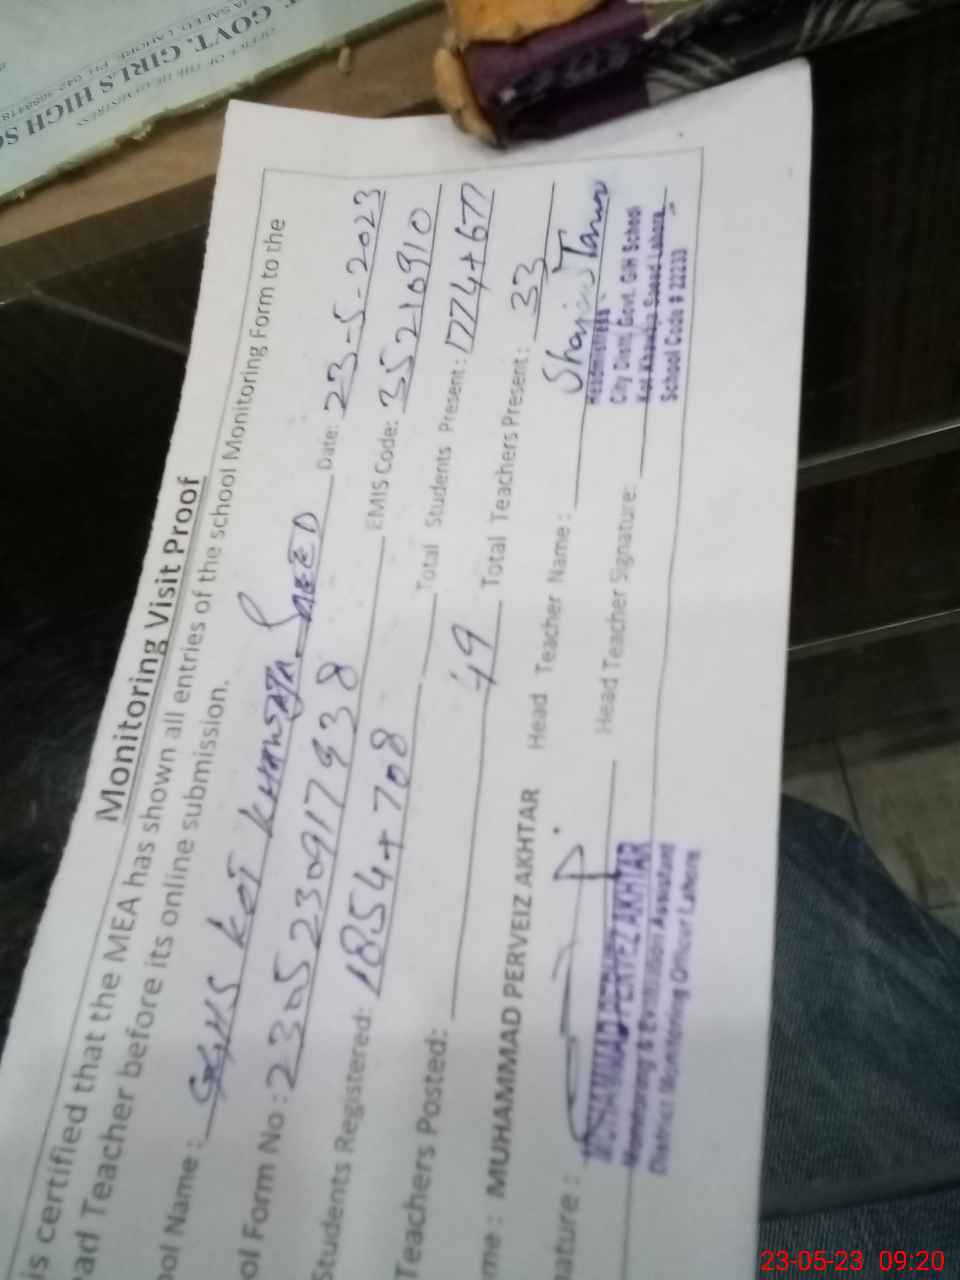 OFFICE OF THE HEAD MISTRESS
GOVT. GIRLS HIGH SC
SAEED LAHORE. PH: 042
Monitoring Visit Proof
is certified that the MEA has shown all entries of the school Monitoring Form to the
ad Teacher before its online submission.
ool Name : GGHS kot khawaja SAEED Date: 23-5-2023
ol Form No : 2305230917938 EMIS Code: 35210910
Students Registered: 1854+708 Total Students Present : 1774+677
Teachers Posted: 49 Total Teachers Present : 33
me : MUHAMMAD PERVEIZ AKHTAR Head Teacher Name :
nature : Head Teacher Signature:
MUHAMMAD PERVEZ AKHTAR
Monitoring & Evaluation Assistant
District Monitoring Officer Lahore
Headmistress
City Distt, Govt. G/H School
Kot Khawaja Saeed Lahore
School Code # 22233
23-05-23 09:20